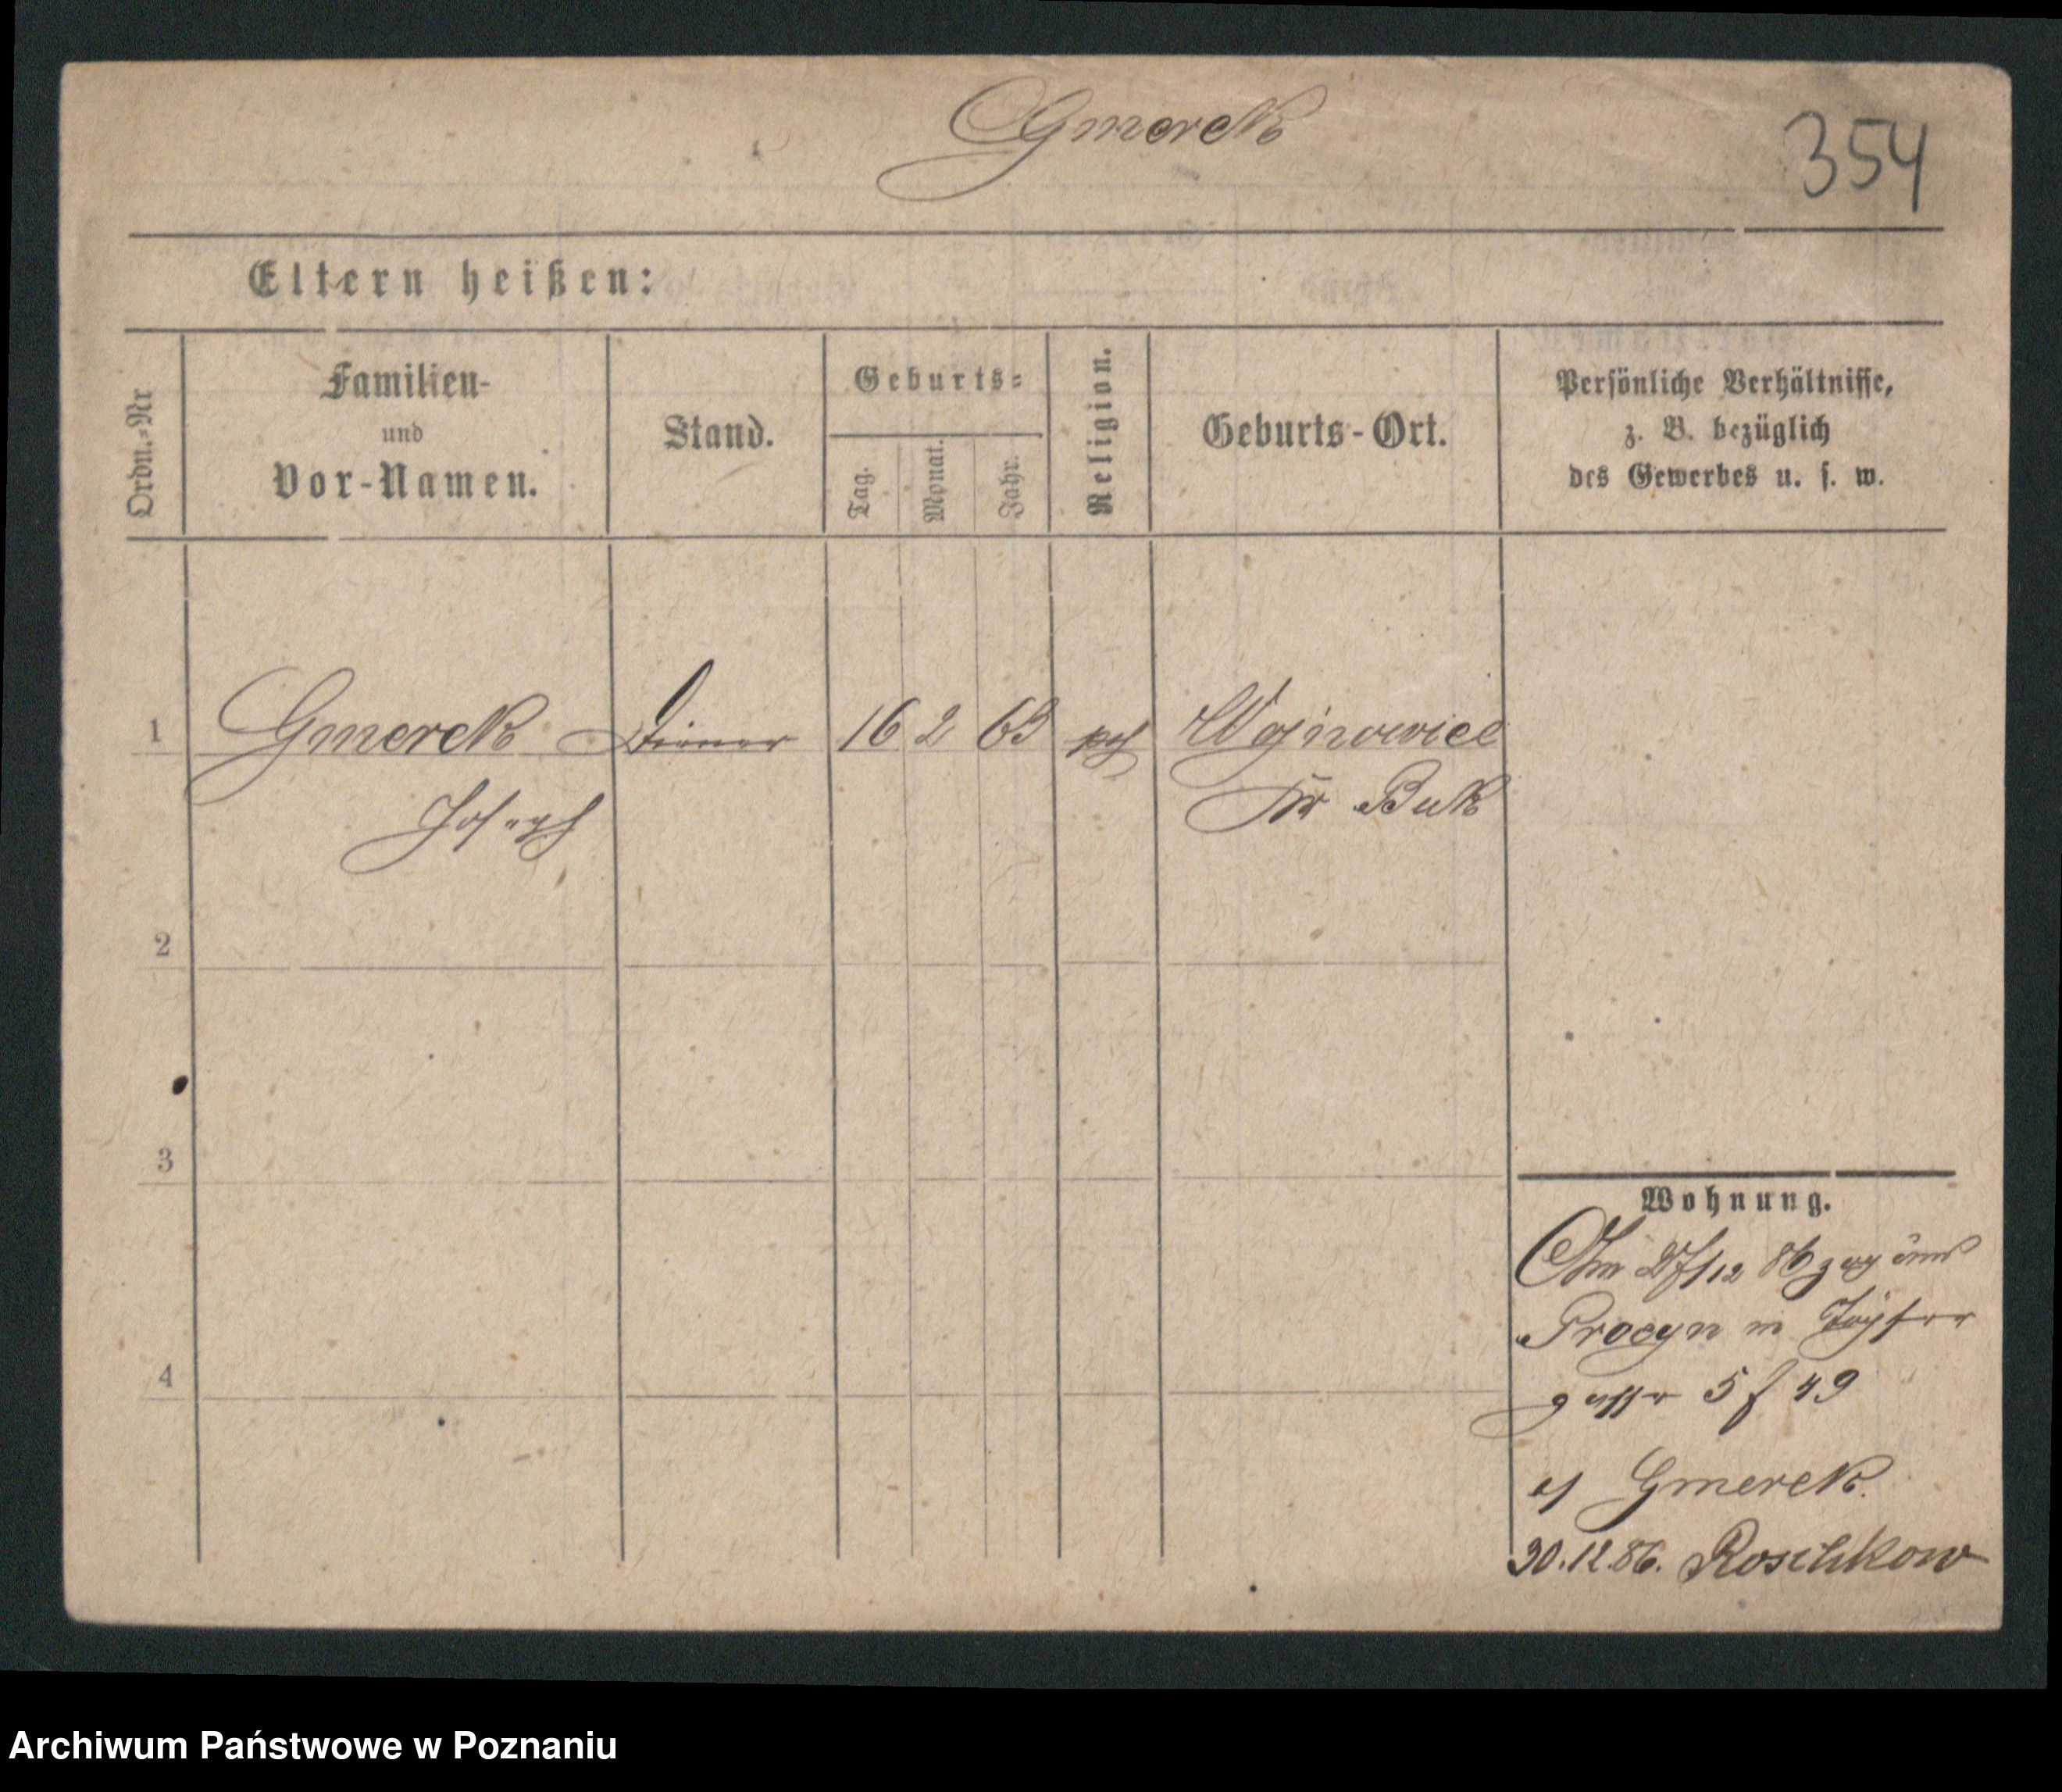 Gmerek
354
Eltern heißen:
Ordn.-Nr
Familien-
und
Vor-Namen.
Stand.
Geburts-
Tag.
Monat.
Jahr.
Religion.
Geburts-Ort.
Persönliche Verhältnisse,
z. B. bezüglich
des Gewerbes u. s. w.
1 Gmerek Diener 16 2 63 Wojnowice
Joseph Kr Buk
2
3
4
Wohnung.
Am 27/12 86 zog aus
in Töpfer
gasse 5
Gmerek.
30.12.86. Roschkow
Archiwum Państwowe w Poznaniu